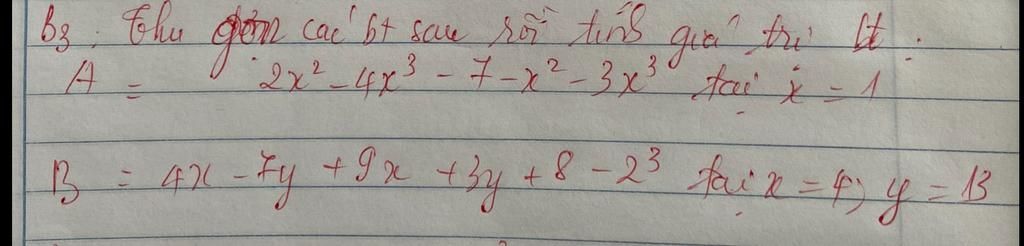 B3. Thu gọn các bt sau rồi tính giá trị bt.
A = 2x² - 4x³ - 7 - x² - 3x³ tại x = 1
B = 4x - 7y + 9x + 3y + 8 - 2³ tại x = 4; y = 13